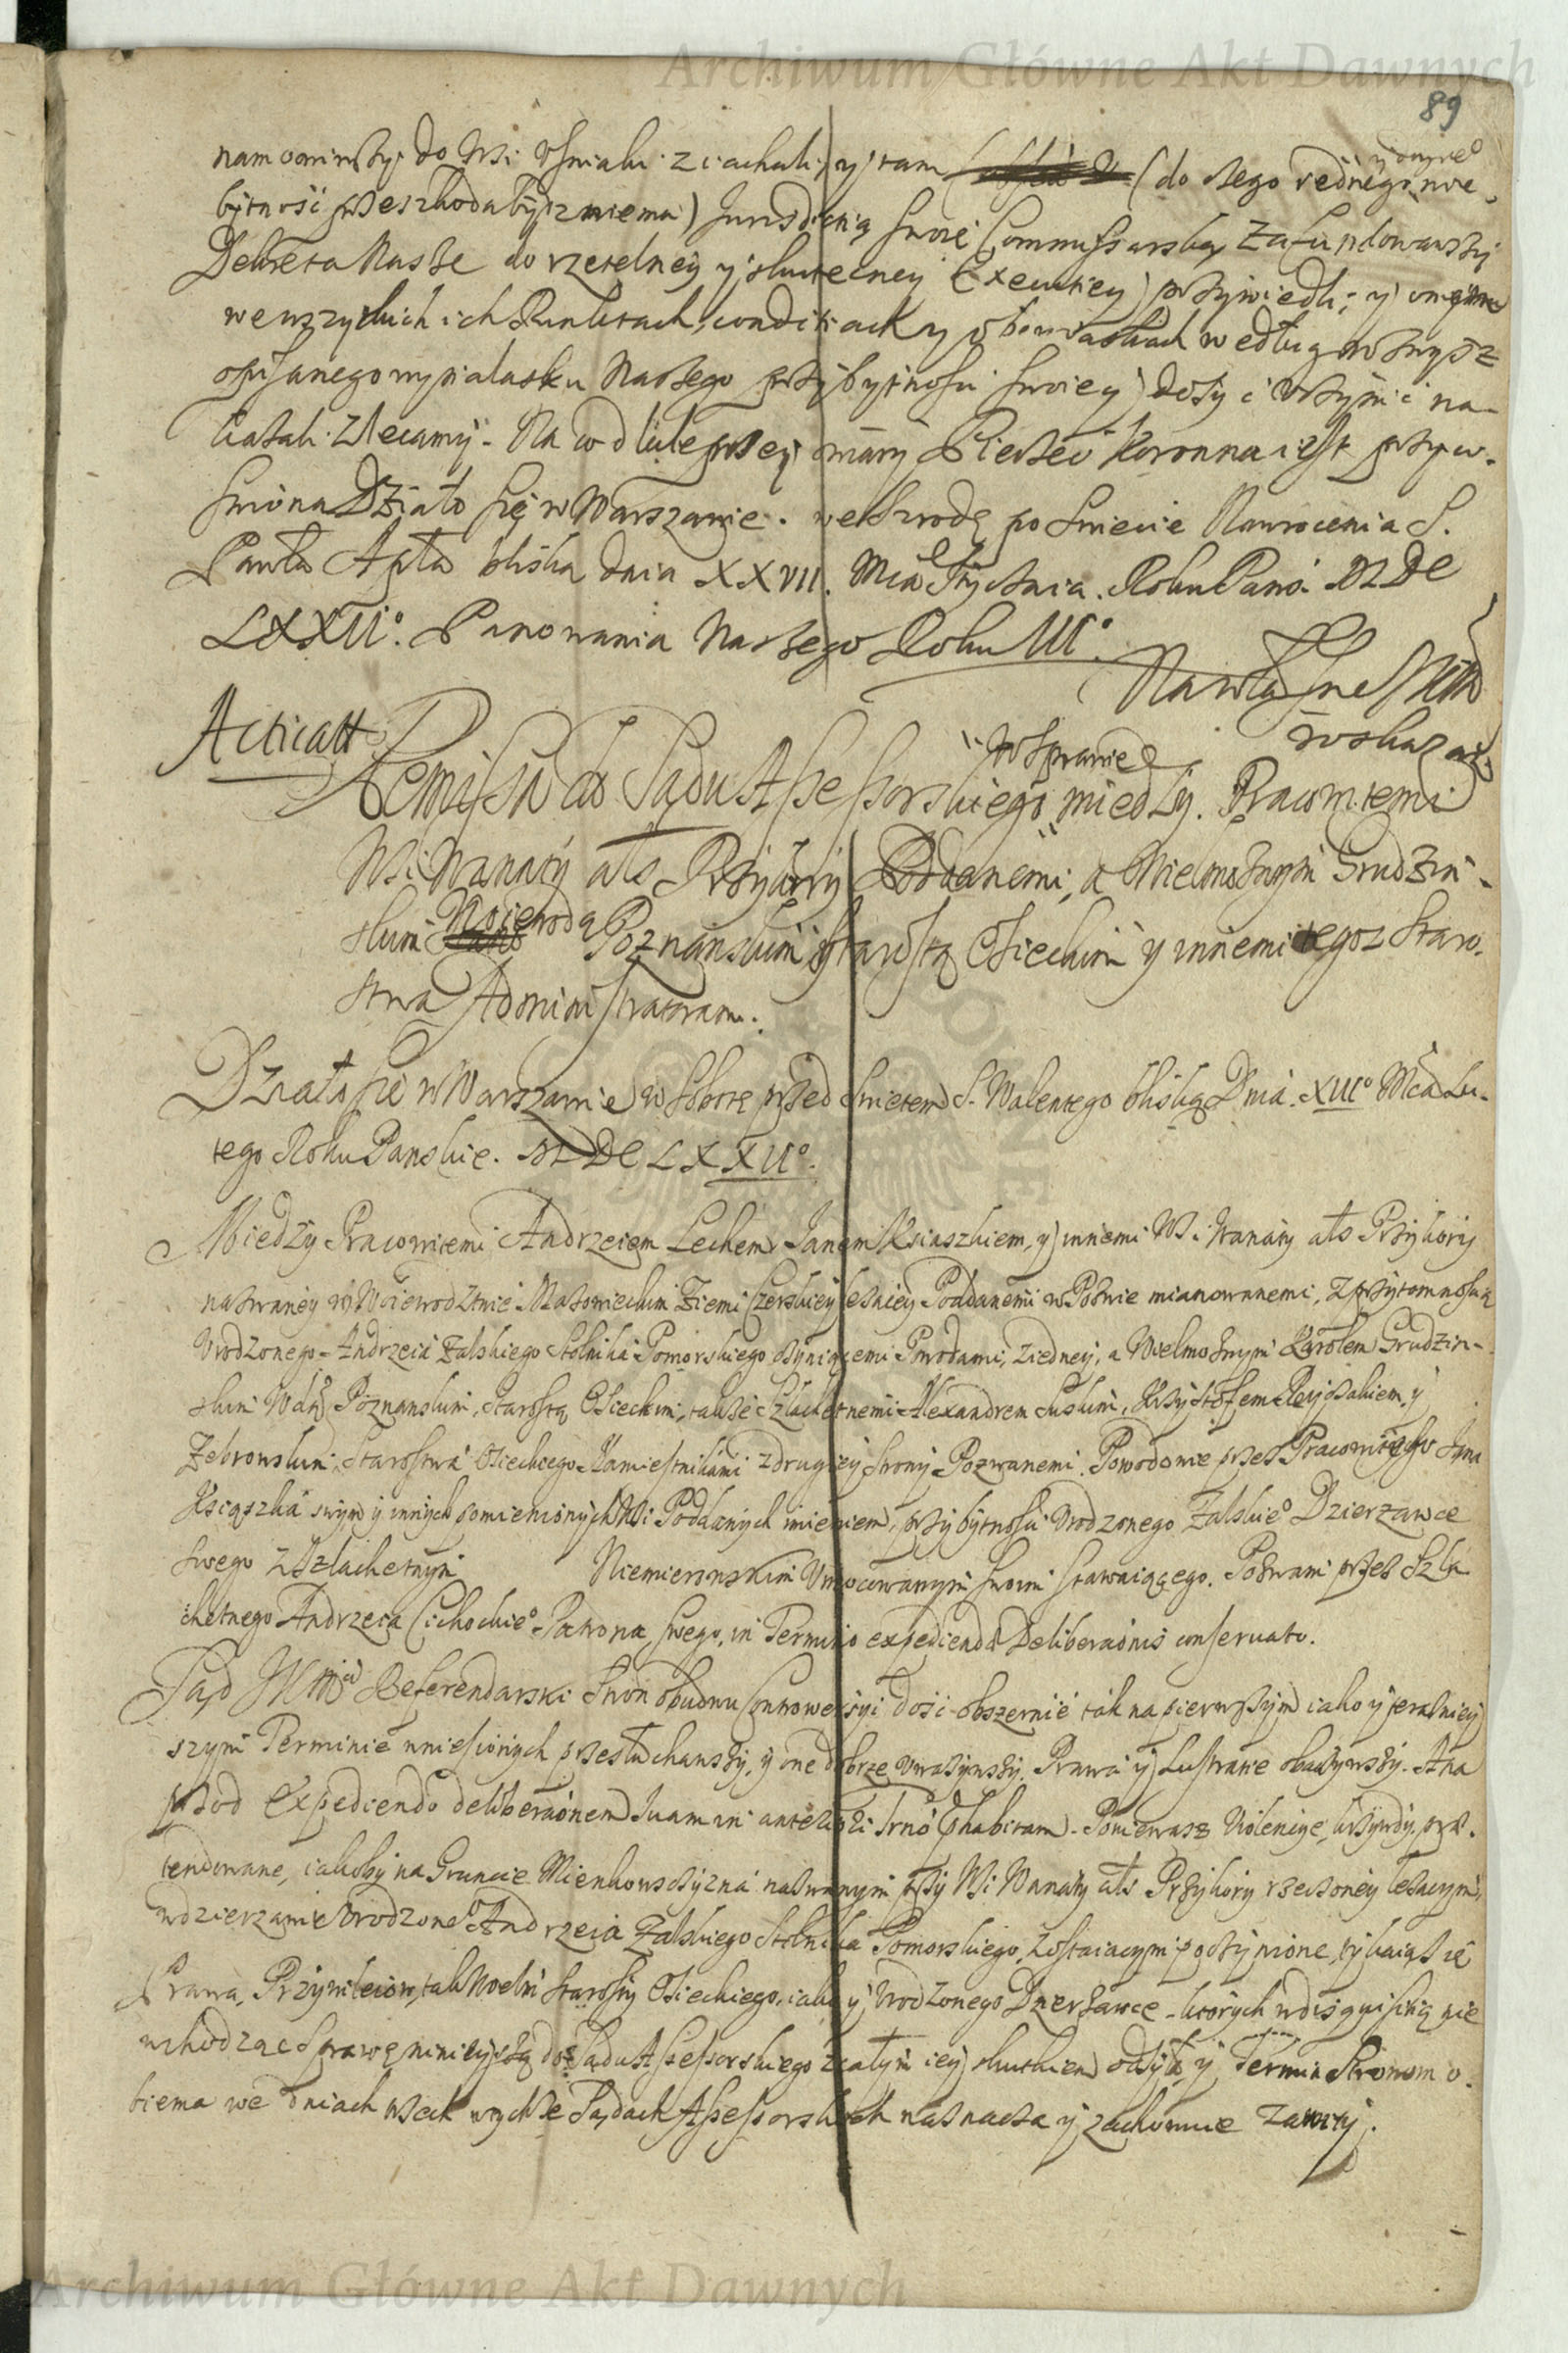 Archiwum Główne Akt Dawnych
89
namowiwszy do Wsi Uśniaki ziachali y tam (do czego iednego y drugie° nie
bytność przeszkodą bydz niema) Jurisdictią swoię Commissarską zafundowawszy
Decreta Nasze do rzetelney y skuteczney Executiey przywiedli, y
we wszystkich ich Punktach, conditiach y obowiąskach według wszwysz
opisanego wynalasku Naszego przy bytności swoiey dosyć uczynić na-
kazali. Zlecamy. Na co dla lepszey wiary Pieczęć Koronna iest przyci-
śniona Działo się w Warszawie. we Szrodę po Święcie Nawrocenia S.
Pawła Apła bliską dnia XXVII. Mca Stycznia. Roku Panś. MDC
LXXII°. Panowania Naszego Roku III°.
Na własne JKMci
roskazanie
Acticatt
Remissa do Sądu Assessorskiego w sprawie między Pracowitemi
Wsi Wanaty als Przykory Poddanemi, a Wielmożnym Grudziń-
skim Woiewodą Poznanskim Starostą Osieckim y innemi tegoz Staro-
stwa Administratorami.
Działo się w Warszawie w Sobotę przed Swietem S. Walentego bliską Dnia XIII° Mca Lu-
tego Roku Panskie. MDCLXXII°.
Między Pracowitemi Andrzeiem Lechem Janem Ksiaszkiem, y innemi Wsi Wanaty als Przykory
nazwaney w Woiewodztwie Mazowieckim Ziemi Czerskiey leżącey Poddanemi w Pozwie mianowanemi, z przytomnością
Urodzonego Andrzeia Zalskiego Stolnika Pomorskiego czyniącemi Powodami, z iedney, a Wielmożnym Karolem Grudzin-
skim Wdą Poznanskim, Starostą Osieckim, także Szlachetnemi Alexandrem Suskim, Krzysztofem y
Zebrowskim Starostwa Osieckiego Namiestnikami z drugiey strony Pozwanemi. Powodowie przez Pracowitego Jana
Ksiąszka swym y innych pomienionych Wsi Poddanych imieniem, przy bytności Urodzonego Zalskie° Dzierzawce
swego z Szlachetnym Niemieronskim Umocowanym swoim stawaiącego. Pozwani przez Szla
chetnego Andrzeia Cichockie° Patrona swego, in Termino expediendae Deliberaonis conservato.
Sąd JKMci Referendarski Stron obudwu Controwersyi dość obszernie tak na pierwszym iako y teraźniey
szym Terminie wniesionych przesłuchawszy, y one dobrze uważywszy, Prawa y Lustracie obaczywszy. A na
przod Expediendo deliberaonem suam in anteriori Trno habitam. Ponieważ Violencye, krzywdy præ-
tendowane, iakoby na Gruncie Mienkowsczyzna nazwanym przy Wsi Wanaty als Przykory rzeczoney leżącym,
w dzierzawie Urodzone° Andrzeia Zalskiego Stolnika Pomorskiego zostaiacym poczynione, tykaią się
Prawa, Przywileiow, tak Wielm Starosty Osieckiego, iako y Urodzonego Dzierżawce, ktorych w disquisitią nie
wchodząc Sprawę ninieyszą do Sądu Assessorskiego z całym iey skutkiem odsyła, y Termin Stronom o-
biema we dniach w tychże Sądach Assessorskich naznacza y zachowuie zawity.
Archiwum Główne Akt Dawnych